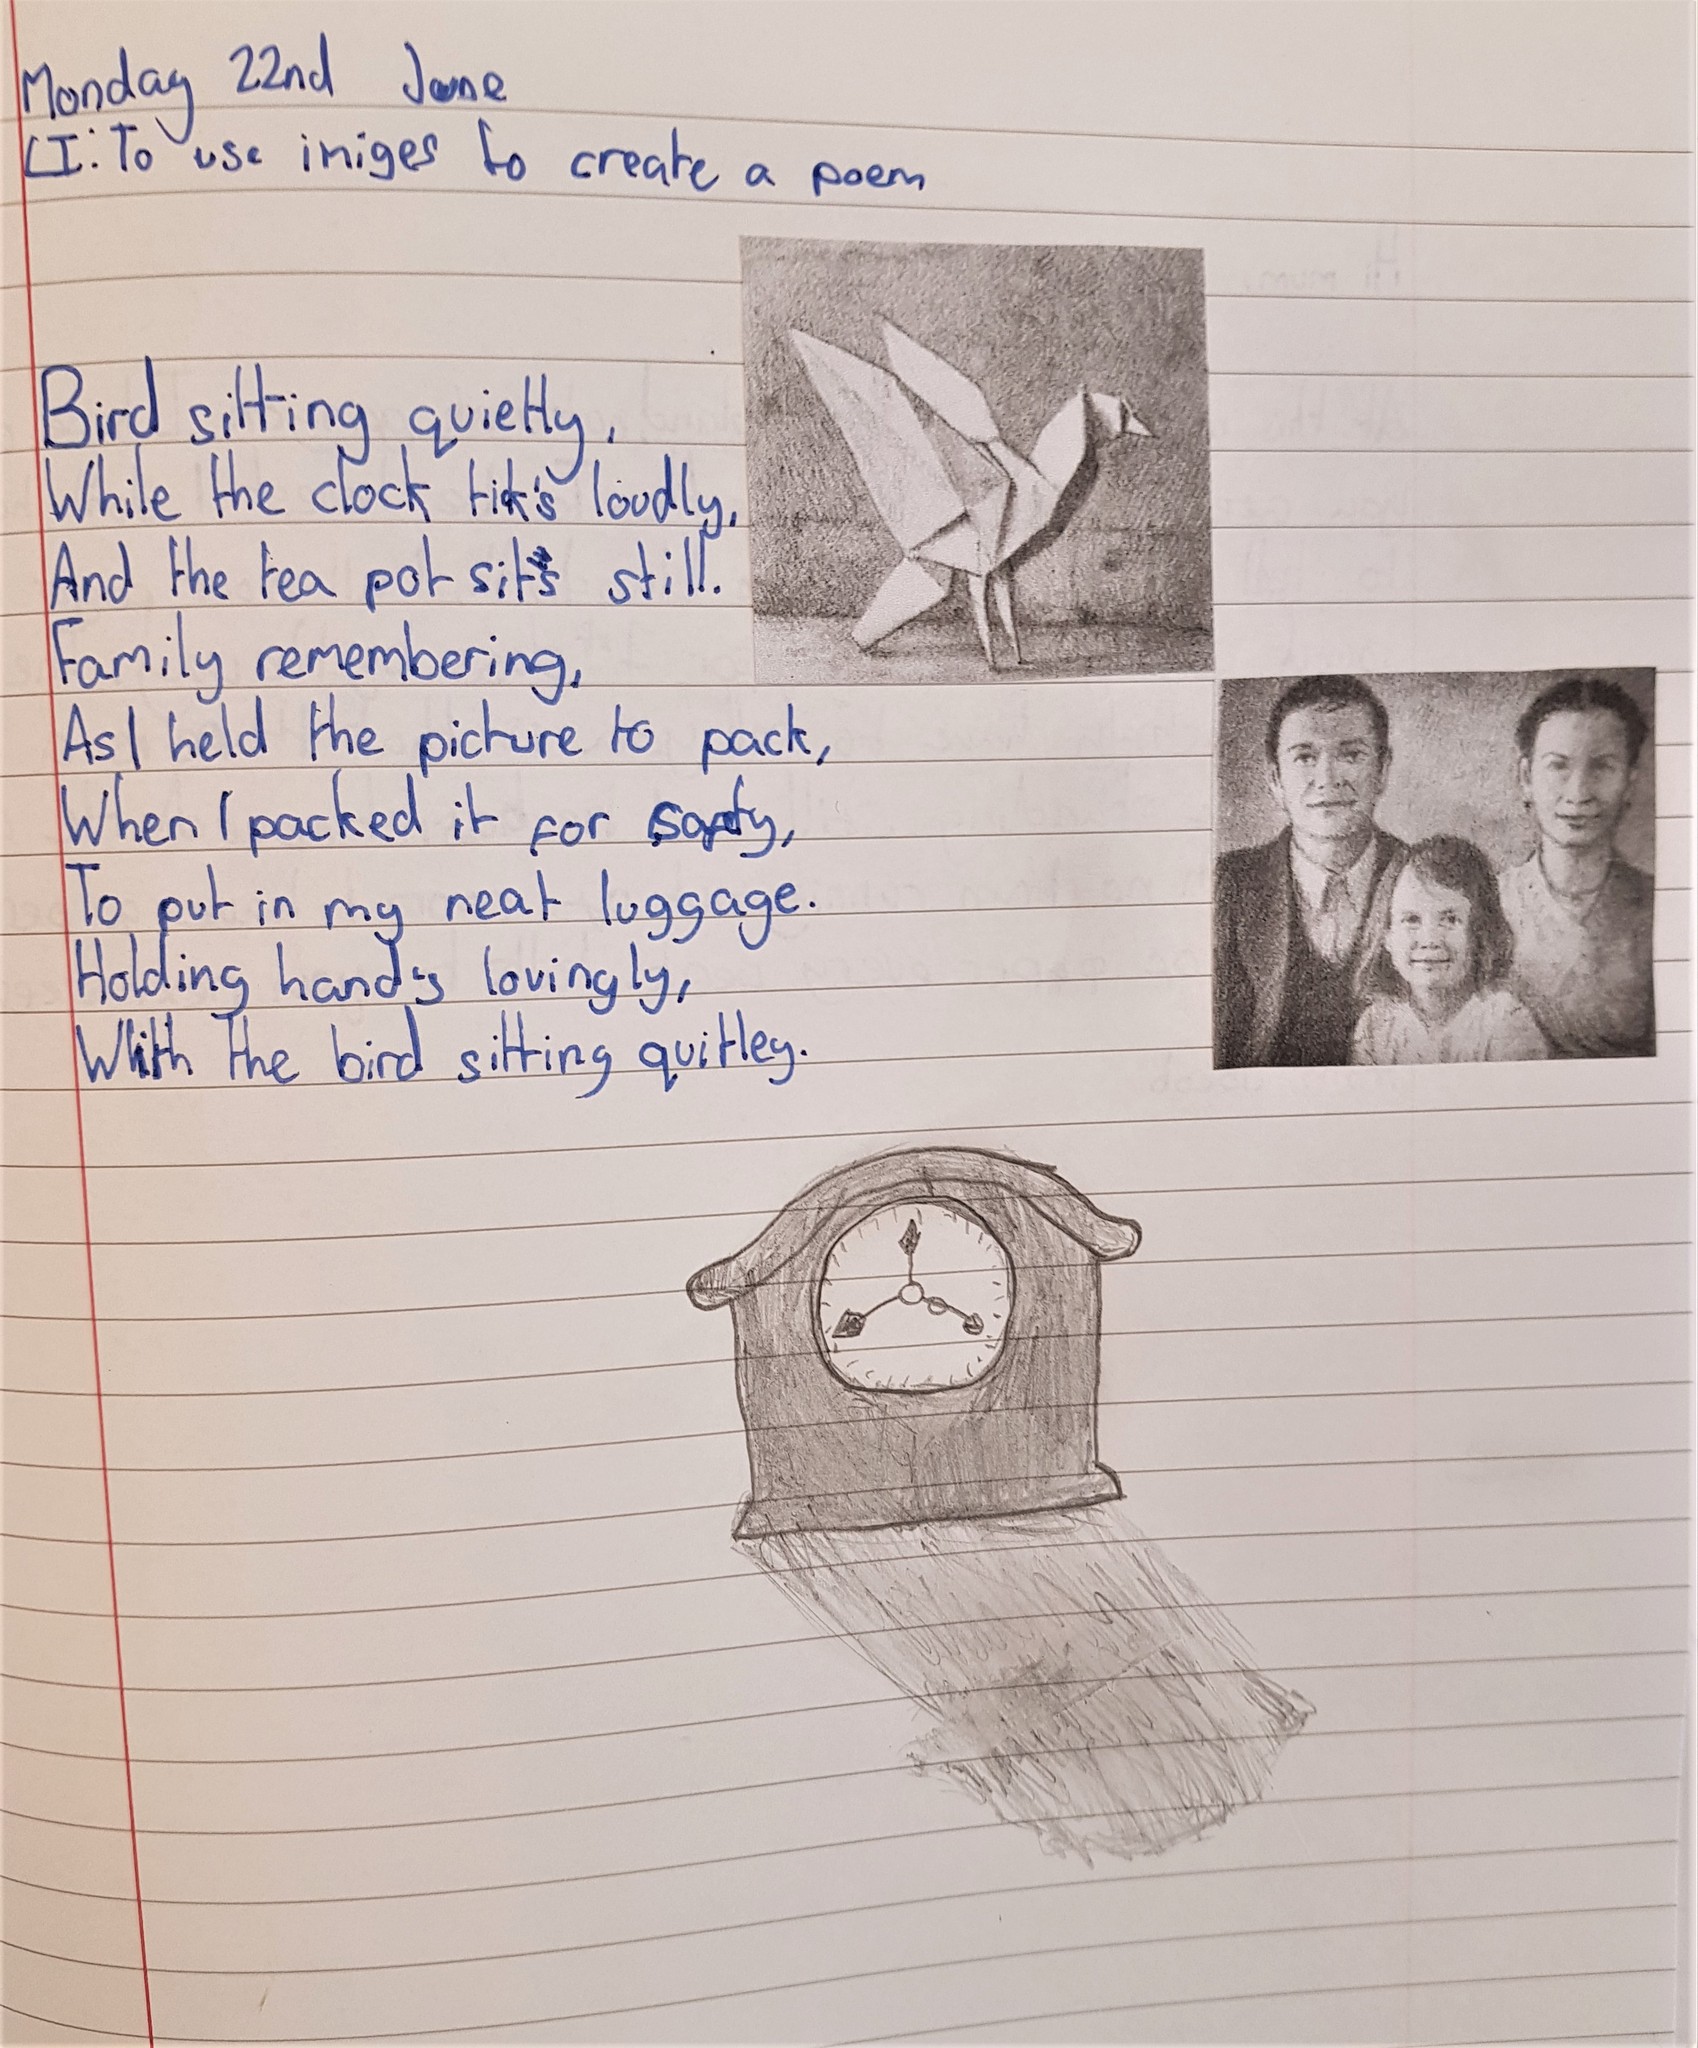 Monday 22nd June
LI: To use imiges to create a poem
Bird sitting quietly,
While the clock tik's loudly,
And the tea pot sit's still.
Family remembering,
As I held the picture to pack,
When I packed it for
To put in my neat luggage.
Holding hand's lovingly,
With the bird sitting quitley.
Hi mum,